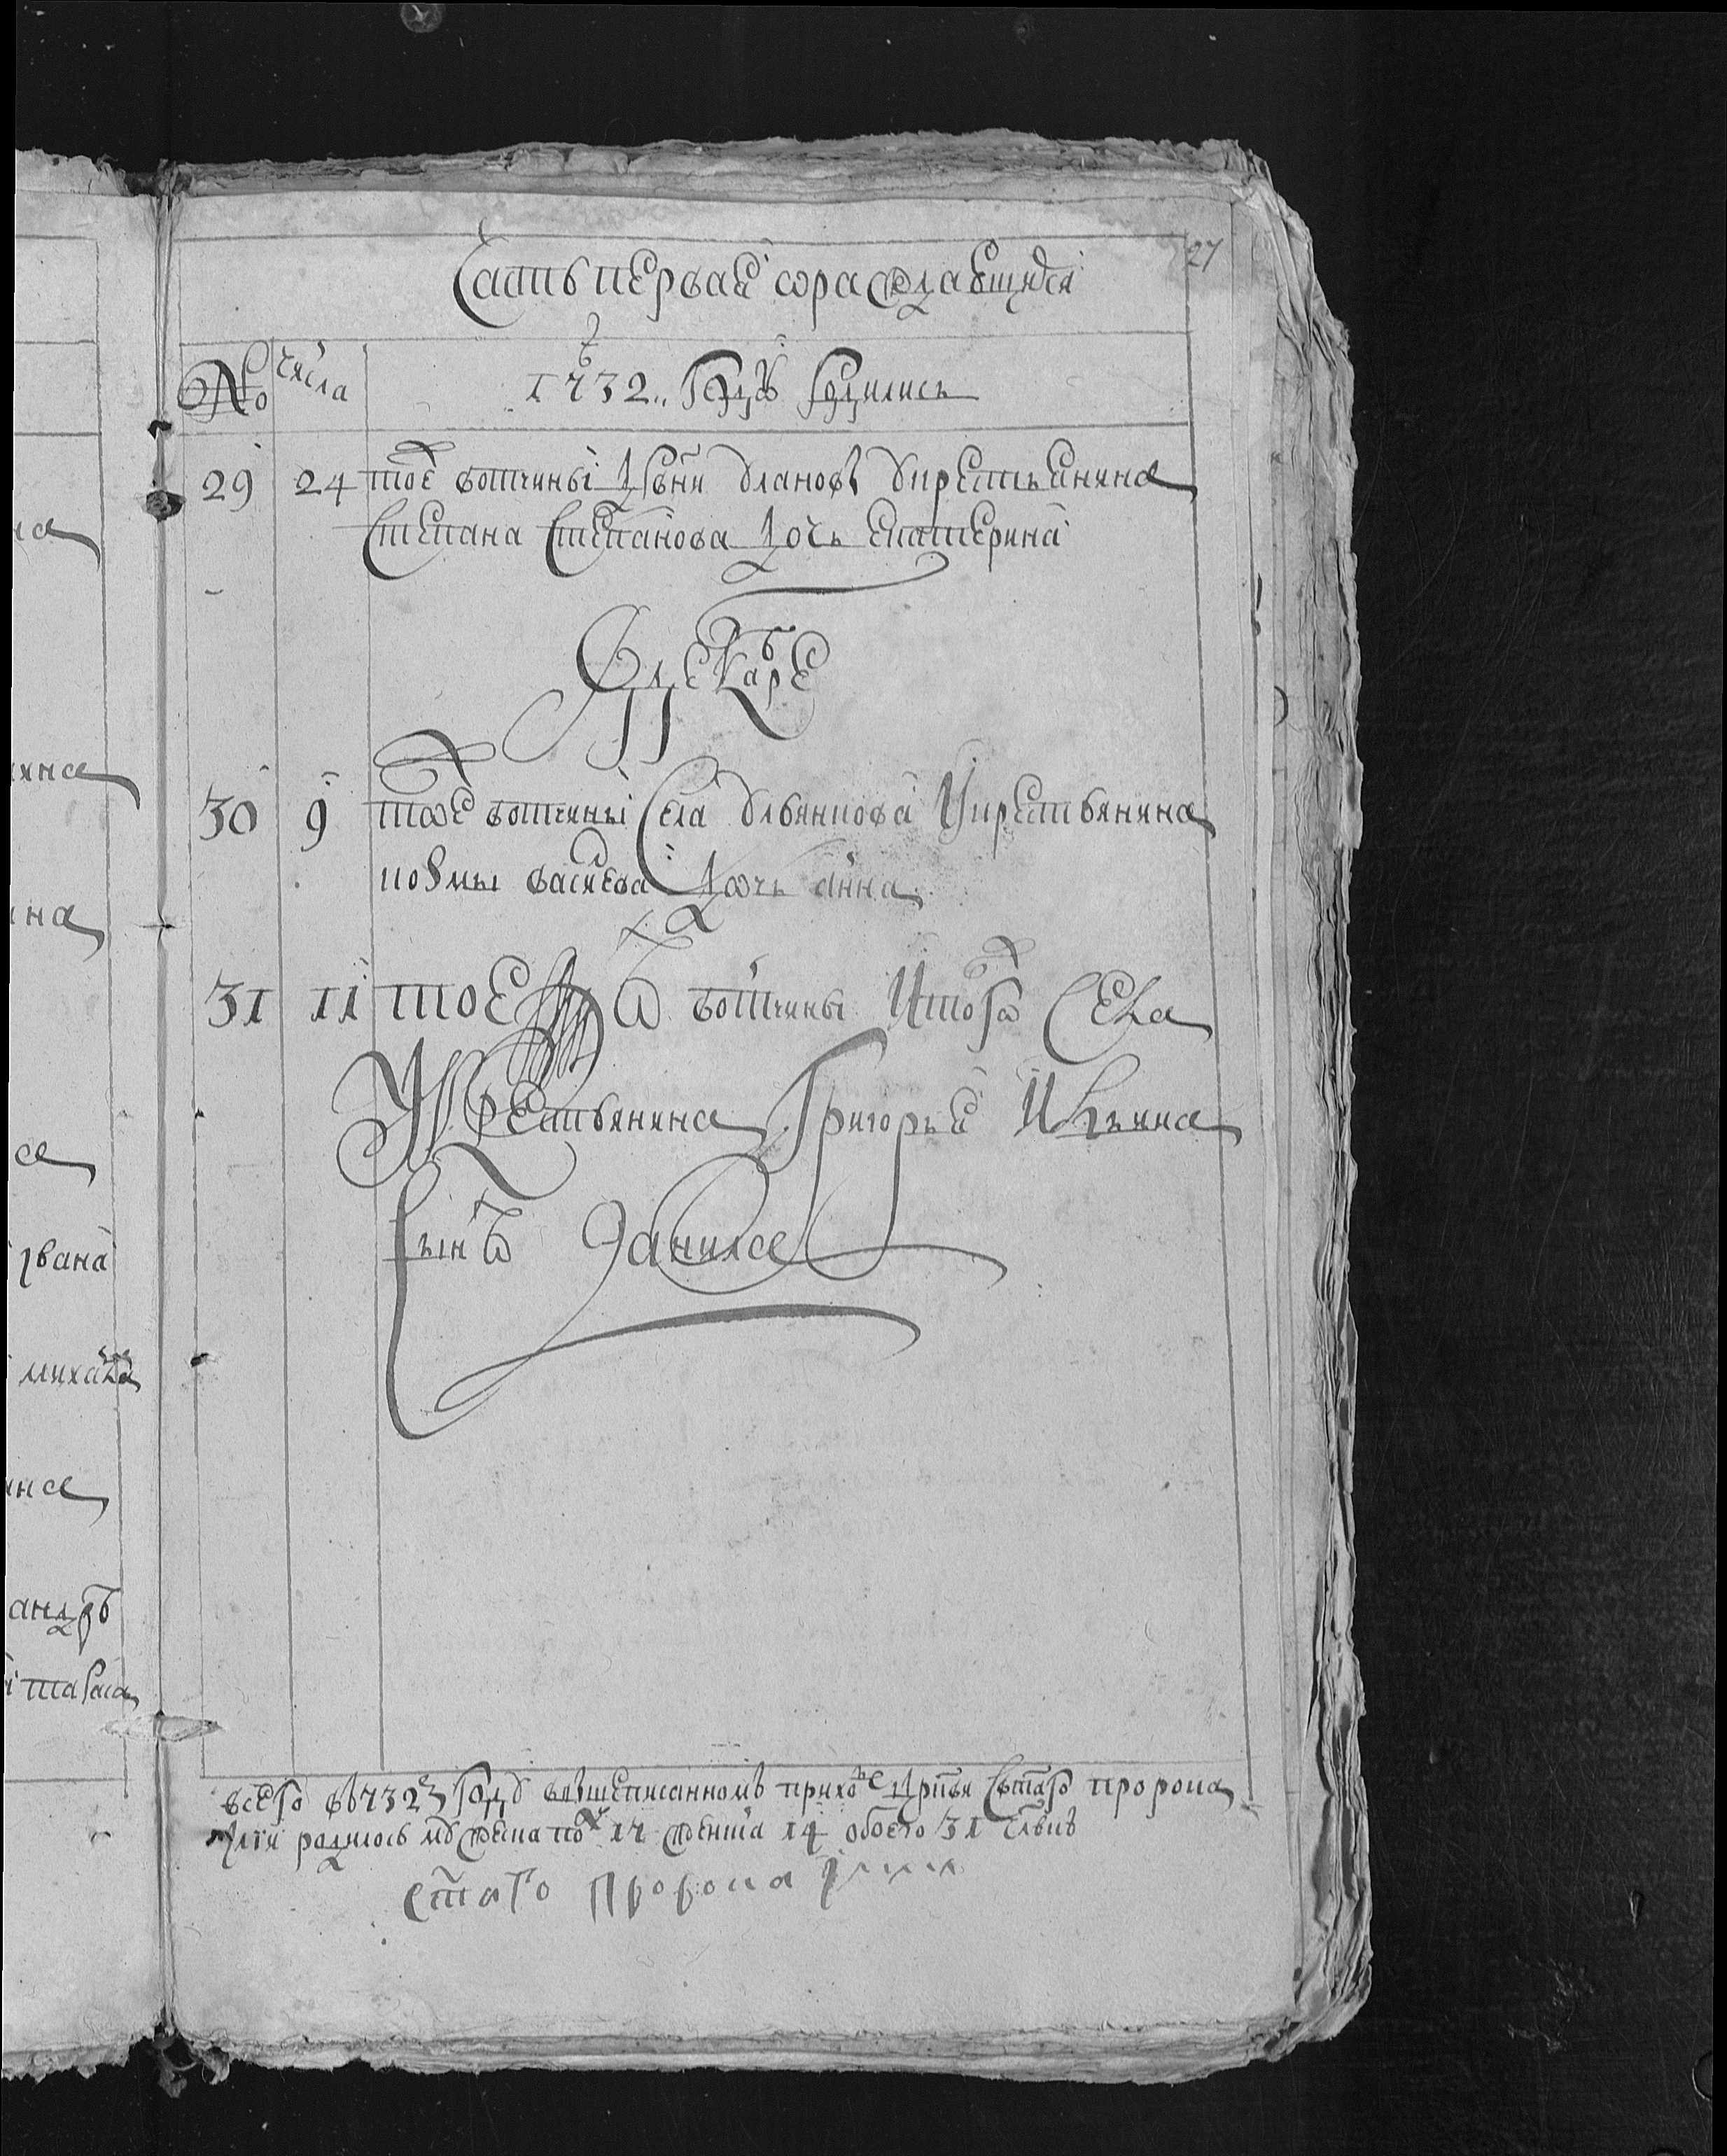 27
Часть первая о раждающихся
№ числа
в 1732 году родились
29 24 тоеж вотчины дрвни у крестьянина
Степана Степанова дочь екатерина
В декабре
30 9 тоеж вотчины села у крестьянина
козмы васильева дочь анна
31 11 тоежъ вотчины и тогож села
У крестьянина Григорья Ильина
сынъ Данила
всего в 732 году в вышеписанномъ приходе цркви стаго пророка
илiи родилось мужеска полу 17 женска 14 обоего 31 члвкъ
стаго пророка илии
на
ина
ана
михаила
андръ
тараса